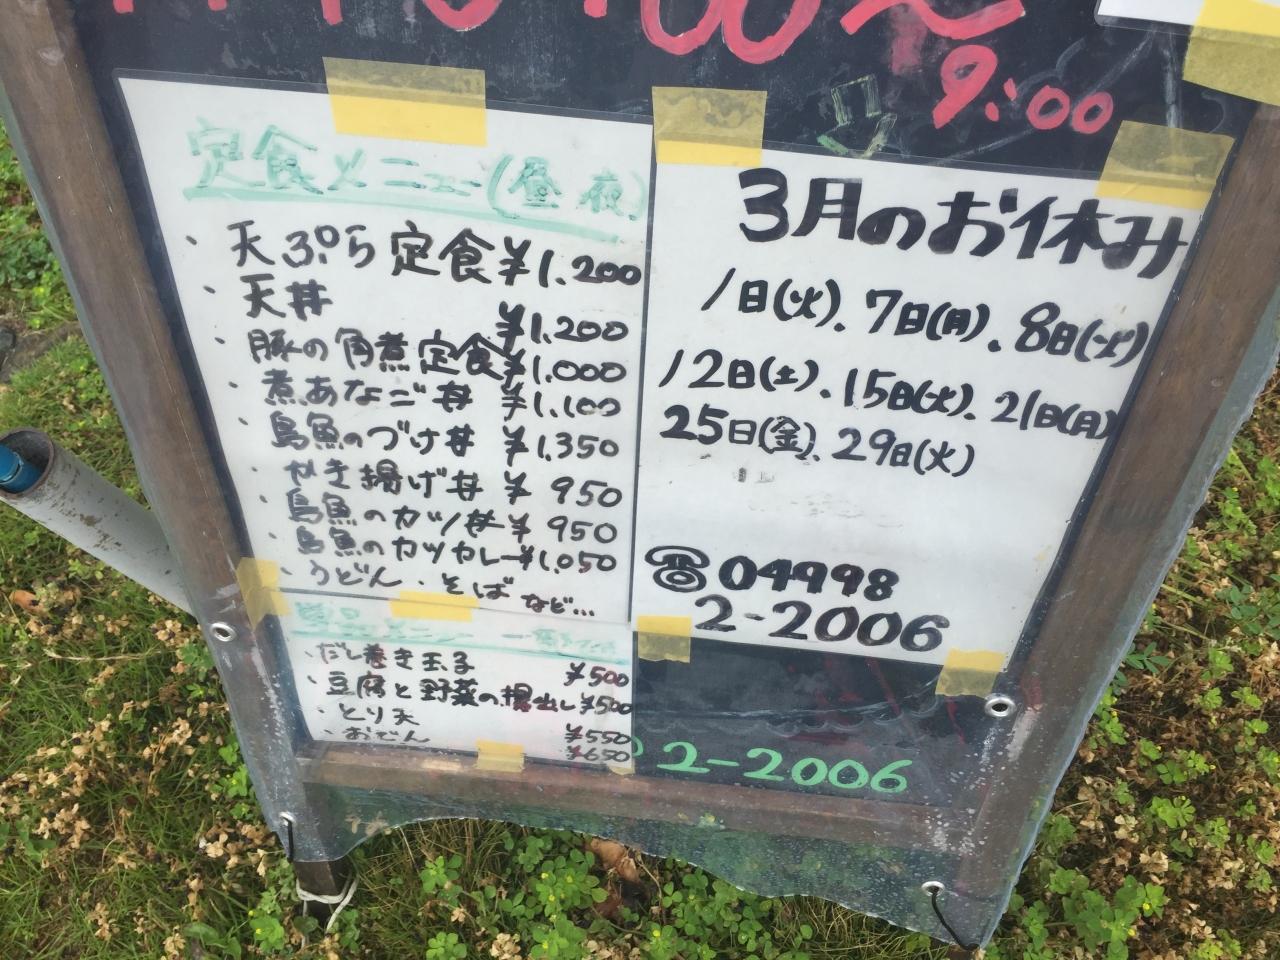 9:00
定食メニュー(昼 夜)
・天ぷら定食 ¥1.200
・天丼 ¥1.200
・豚の角煮定食 ¥1.000
・煮あなご丼 ¥1.100
・島魚のづけ丼 ¥1.350
かき揚げ丼 ¥950
・島魚のカツ丼 ¥950
・島魚のカツカレー ¥1.050
・うどん・そば など...
メニュー 一
・だし巻き玉子 ¥500
・豆腐と野菜の揚出し ¥500
・とり天 ¥550
・おでん ¥650
3月のお休み
1日(火)、7日(月)、8日(火)
12日(土)、15日(火)、21日(月)
25日(金)、29日(火)
☎04998
2-2006
2-2006